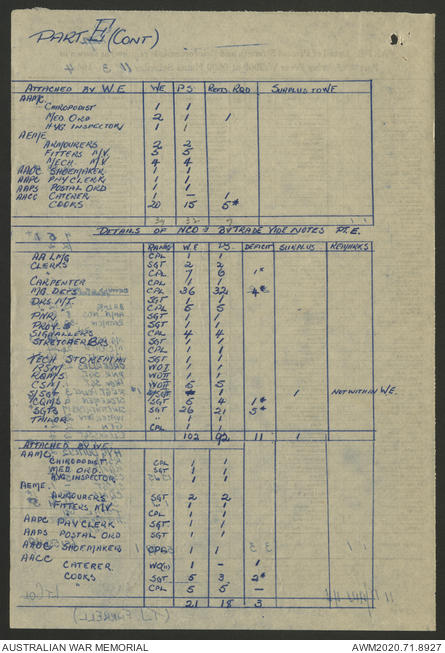 PART E (CONT)
ATTACHED BY W.E WE P.S REOTS. RQD SURPLUS TO WE
AAMC
CHIROPODIST 1 1
MED. ORD 2 1 1
HYG INSPECTOR 1 1
AEME
ARMOURERS 2 2
FITTERS M/V 5 5
MECH. M/V 4 4
AAOC SHOEMAKER 1 1
AAPC PAY CLERK 1 1
AAPS POSTAL ORD 1 1
AACC CATERER 1 — 1
COOKS 20 15 5*
DETAILS OF NCO'S BY TRADE VIDE NOTES PT. E.
RANK W.E P.S. DEFICIT SURPLUS REMARKS
AA LMG CPL 1 1
CLERKS SGT 2 2
" CPL 7 6 1*
CARPENTER CPL 1 1
M/G DETS CPL 36 32 4*
DRS M/T. SGT 1 1
" CPL 5 5
PNR SGT 1 1
PROV. S SGT 1 1
SIGNALLERS CPL 4 4
STRETCHER BRS SGT 1 1
" CPL 1 1
TECH STOREMAN SGT 1 1
RSM WO I 1 1
RQMS WO II 1 1
CSM WO II 5 5
S/SGT S/SGT 1 1 NOT WITHIN W.E.
CQMS SGT 5 4 1*
SGTS SGT 26 21 5*
TAILOR " 1 1
CPL 1 1
102 92 11 1
ATTACHED BY W.E.
AAMC
CHIROPODIST CPL 1 1
MED. ORD SGT 1 1
HYG INSPECTOR " 1 1
AEME
ARMOURERS SGT 2 2
FITTERS M/V " 1 1
" CPL 1 1
AAPC PAY CLERK SGT 1 1
AAPS POSTAL ORD SGT 1 1
AAOC SHOEMAKERS CPL 1 1
AACC
CATERER WO(II) 1 — 1
COOKS SGT 5 3 2*
" CPL 5 5 —
21 18 3
AUSTRALIAN WAR MEMORIAL AWM2020.71.8927